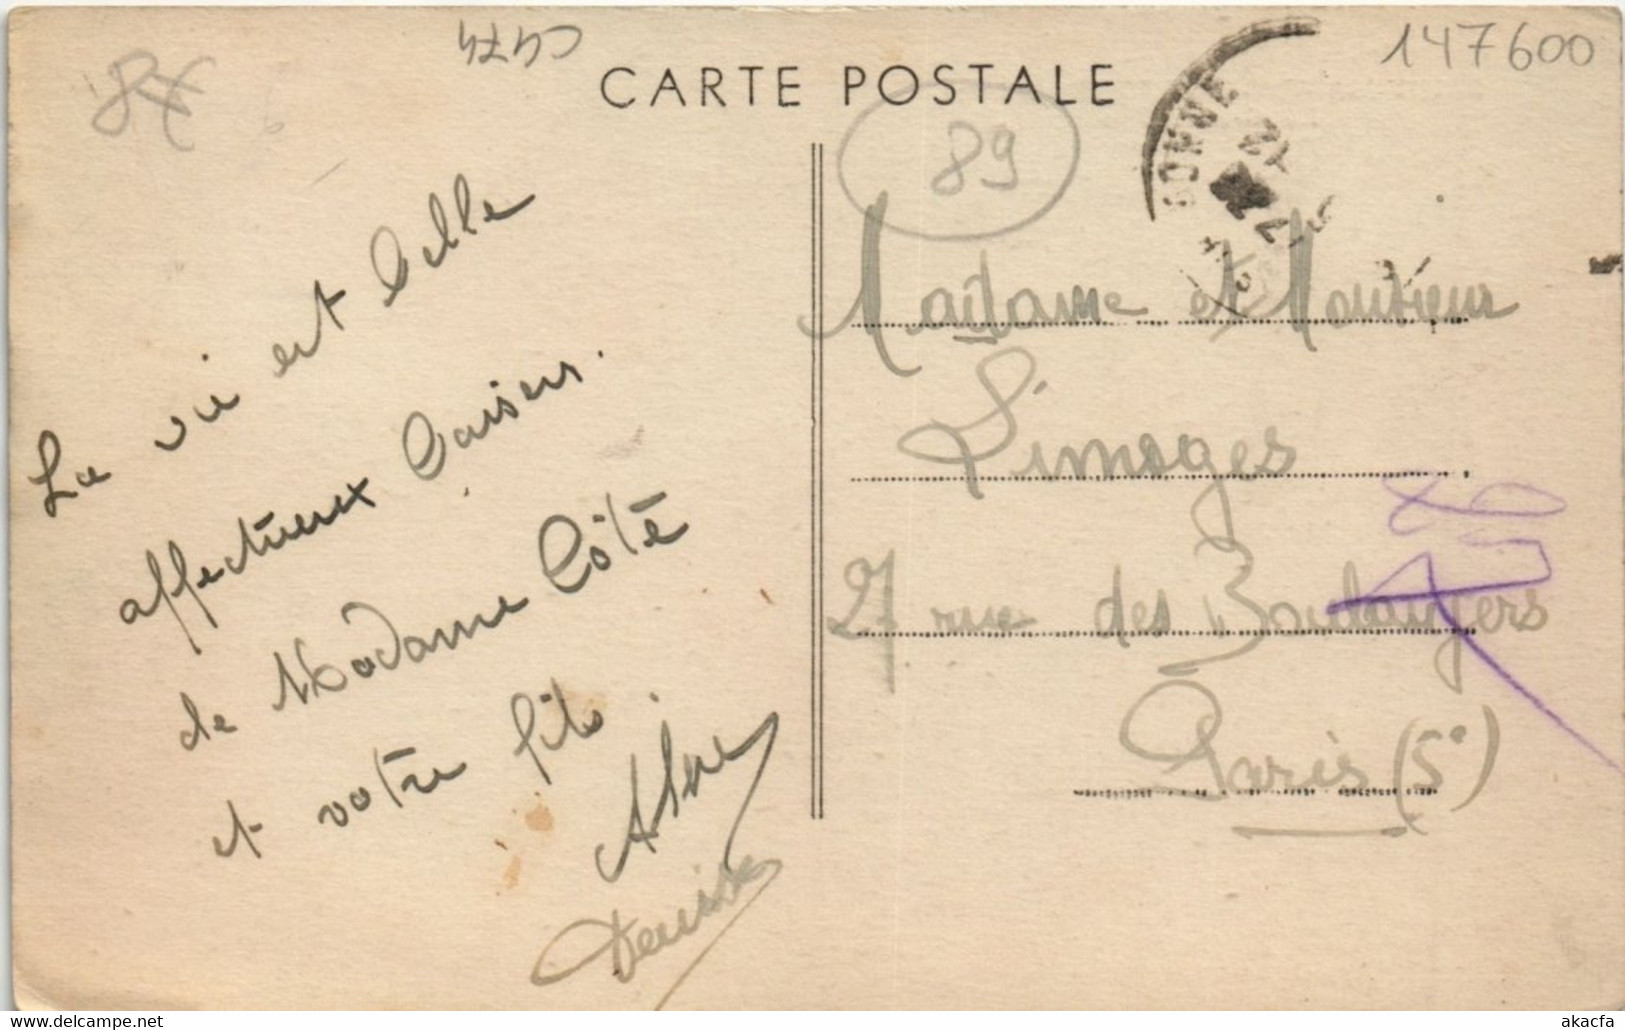 87
C474
CARTE POSTALE
147600
89
YONNE
La vie est belle
affectueux baisers.
de Madame Côté
et votre fils.
Denise
Madame et Monsieur
Limoges
27 rue des Boulangers
Paris (5e)
www.delcampe.net
akacfa